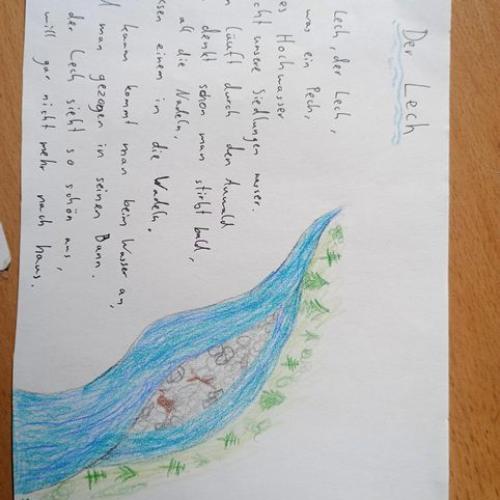 Der Lech
Lech, der Lech,
was ein Pech,
es Hochwasser
cht unsere Siedlungen nasser.
n läuft durch den Auwald
denkt schon man stirbt bald,
all die Nadeln,
sen einem in die Wadeln.
kaum kommt man beim Wasser an,
d man gezogen in seinen Bann.
der Lech sieht so schön aus,
will gar nicht mehr nach haus.